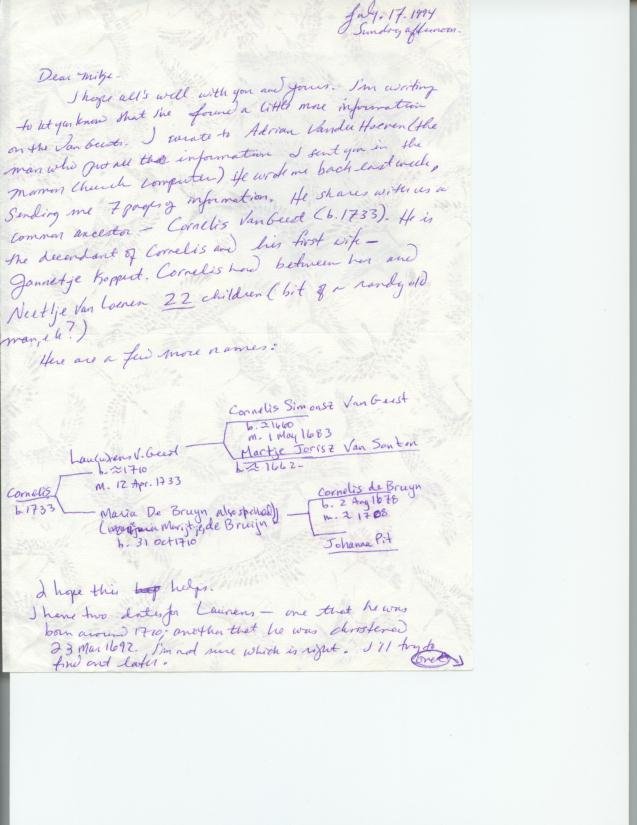 July. 17. 1994
Sunday afternoon.
Dear Mitze.
I hope all's well with you and yours. I'm writing
to let you know that I've found a little more information
on the Van Geests. I wrote to Adrian Vander Hoeven (the
man who put all the information I sent you in the
Mormon Church computer) He wrote me back last week,
Sending me 7 pages of information. He shares with us a
common ancestor – Cornelis Van Geest (b. 1733). He is
the decendant of Cornelis and his first wife –
Jannetje Koppert. Cornelis had between her and
Neeltje Van Loenen 22 children (bit of a randy old
man, eh?)
Here are a few more names:
Cornelis Simonsz Van Geest
b. ≈ 1660
m. 1 May 1683
Martje Jorisz Van Santen
b. ≈ 1662
Lau(w)rens V. Geest
b. ≈ 1710
m. 12 Apr. 1733
Cornelis
b. 1733
Maria De Bruyn also spelled
(Marijtje de Bruijn
b. 31 Oct 1710
Cornelis de Bruyn
b. 2 Aug 1678
m. ≈ 1708
Johanna Pit
I hope this helps.
I have two dates for Laurens – one that he was
born around 1710; another that he was christened
23 Mar 1692. I'm not sure which is right. I'll try to
find out later.
over